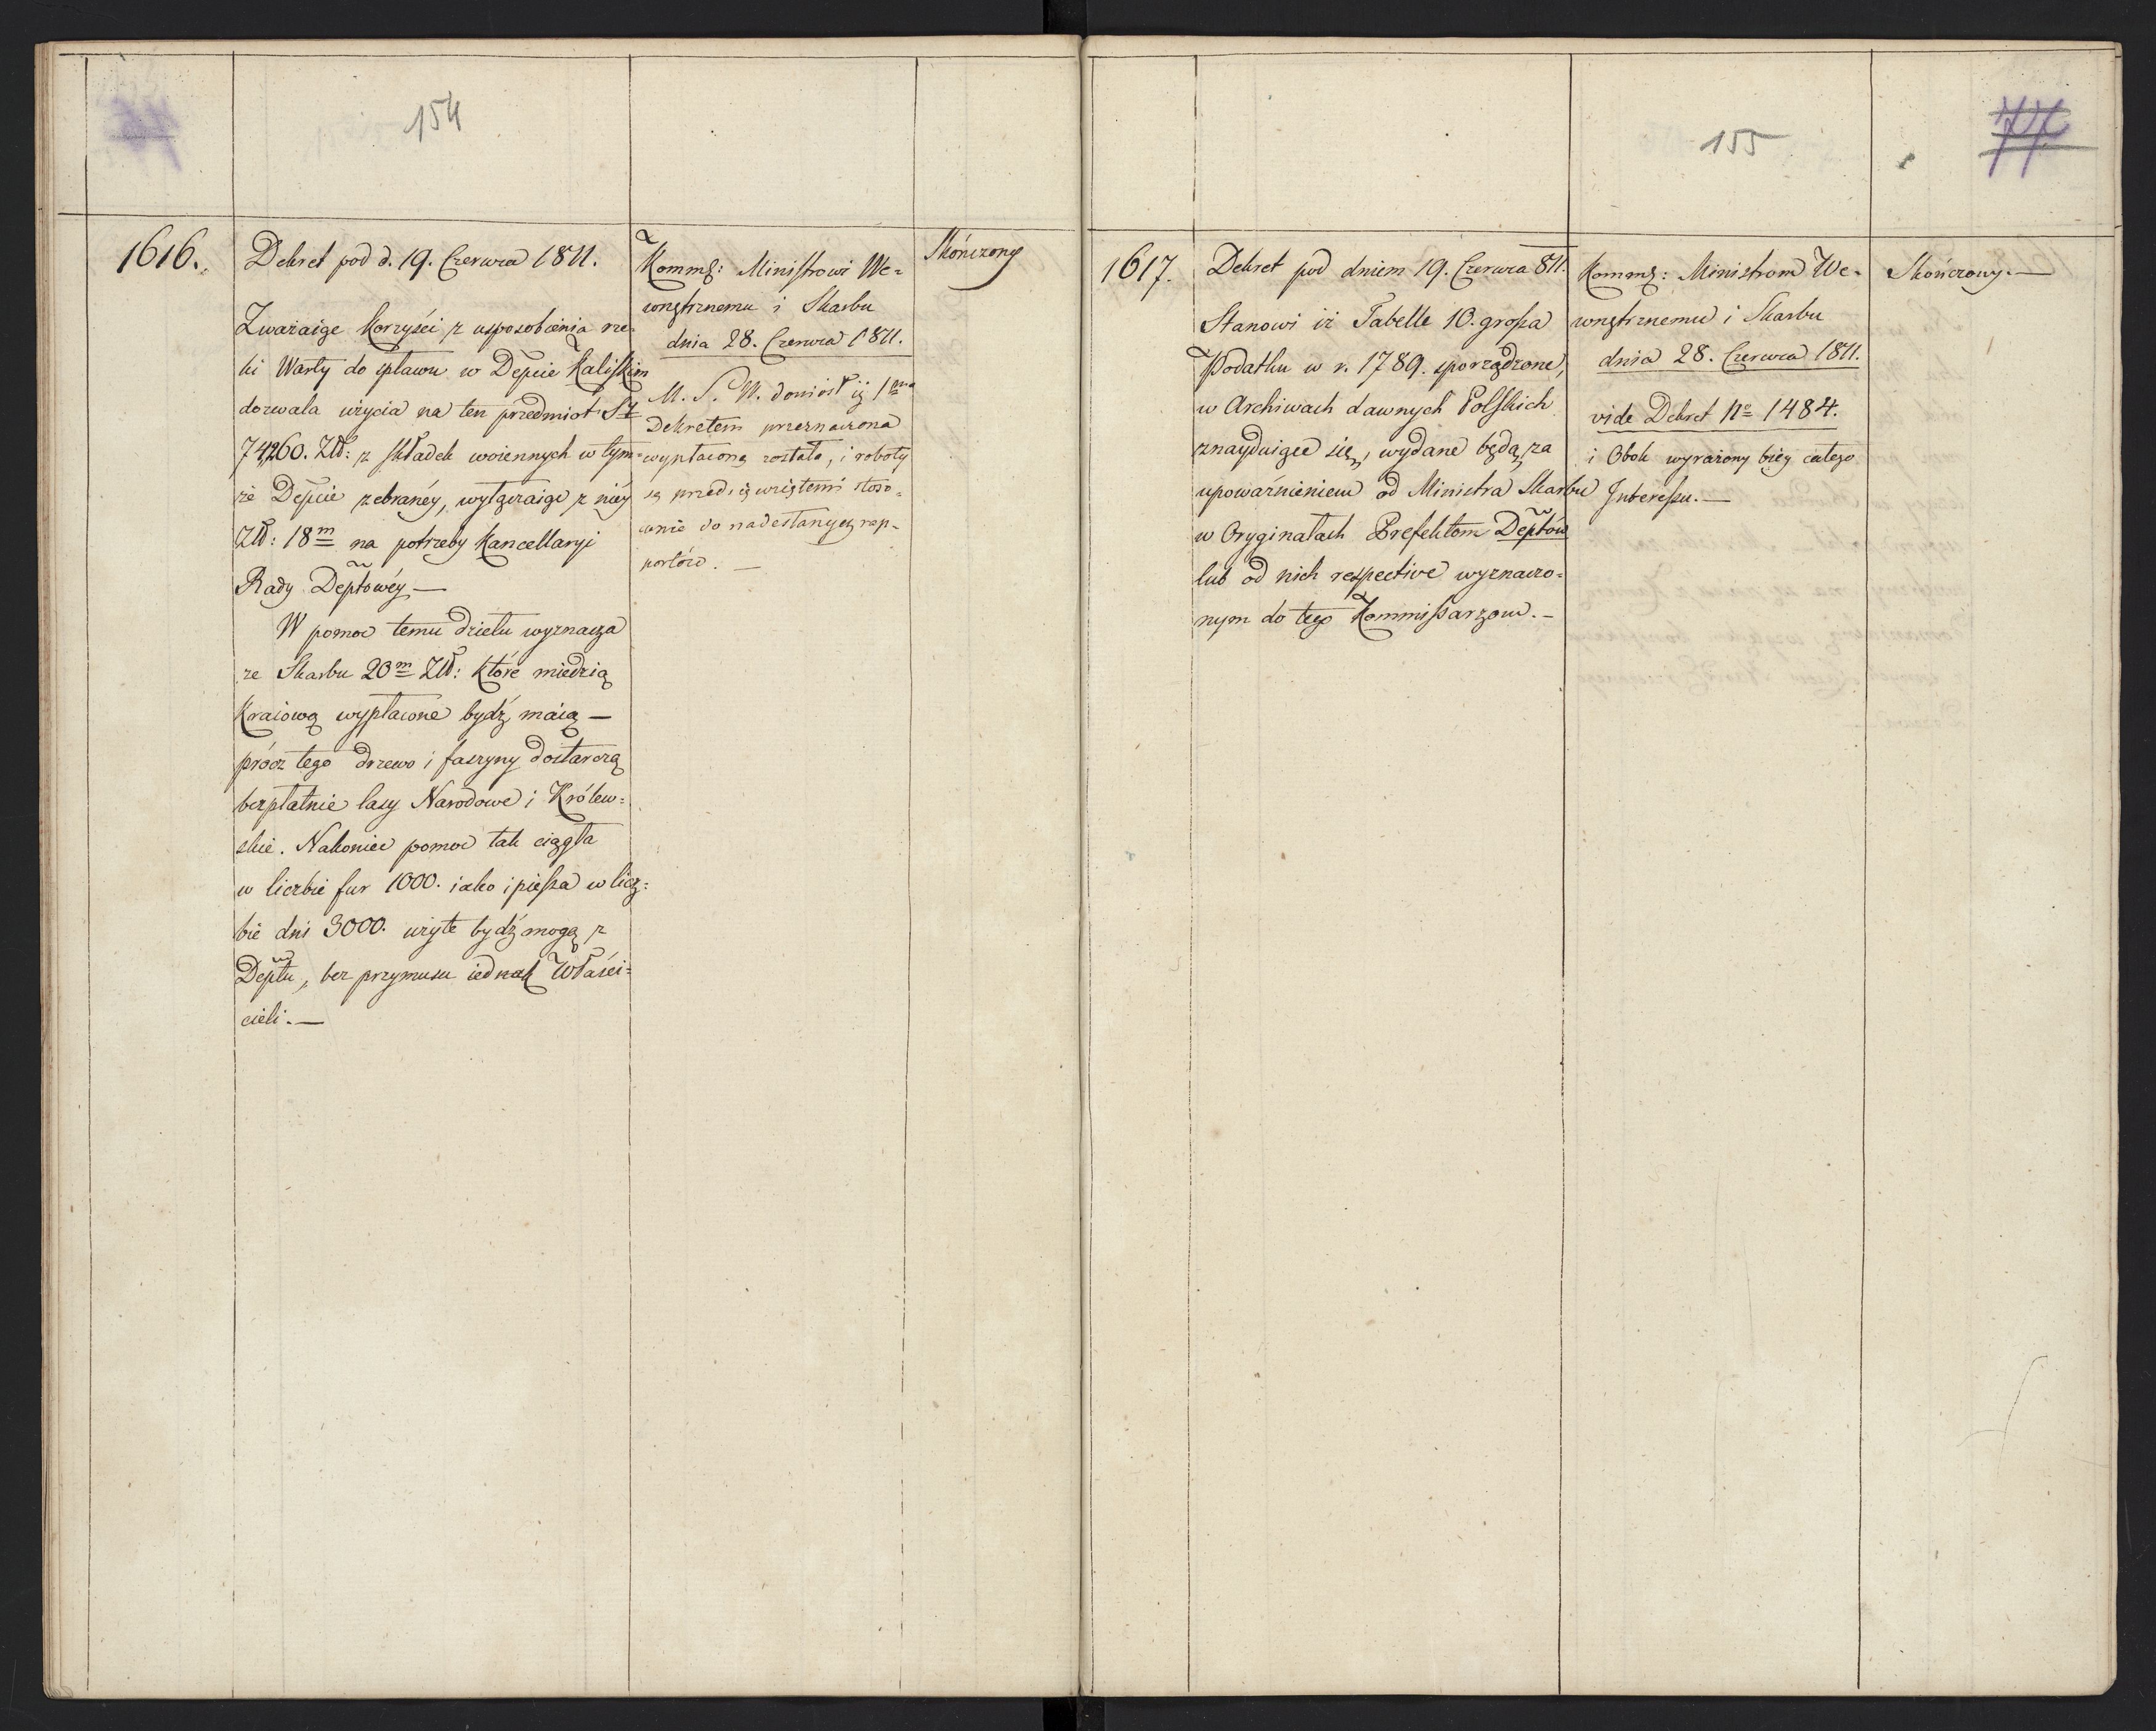 154
1616.
Dekret pod d. 19. Czerwca 1811.
Zważaiąc korzyści z usposobienia rze-
ki Warty do spławu w Depcie Kaliskim
dozwala użycia na ten przedmiot Sy
74,260. Zł: z składek woiennych w tym-
że Depcie zebranéy, wyłączaiąc z niéy
Zł: 18m na potrzeby Kancellaryi
Rady Deptowéy —
W pomoc temu dziełu wyznacza
ze Skarbu 20m Zł: które miedzią
kraiową wypłacone bydź maią —
prócz tego drzewo i faszyny dostarczą
bezpłatnie lasy Narodowe i Królew=
skie. Nakoniec pomoc tak ciągła
w liczbie fur 1000. iako i piesza w licz=
bie dni 3000. użyte bydź mogą z
Deptu, bez przymusu iednak Właści=
cieli. —
Kommg: Ministrowi We=
wnętrznemu i Skarbu
dnia 28. Czerwca 1811.
M. S. W. doniosł iż
Dekretem przeznaczona
wypłaconą została, i roboty
są przedsięwziętemi stoso=
wnie do nadesłanych rap-
portów. —
Skończony
155
77
1617.
Dekret pod dniem 19. Czerwca 811.
Stanowi iż Tabelle 10. grosza
Podatku w r. 1789. sporządzone,
w Archiwach dawnych Polskich
znayduiące się, wydane będą za
upoważnieniem od Ministra Skarbu
w Oryginałach Prefektom Deptów
lub od nich respective wyznaczo=
nym do tego Kommissarzom. —
Kommg: Ministrom We-
wnętrznemu i Skarbu
dnia 28. Czerwca 1811.
vide Dekret No 1484.
i Obok wyrażony bieg całego
Interessu. —
Skończony. —